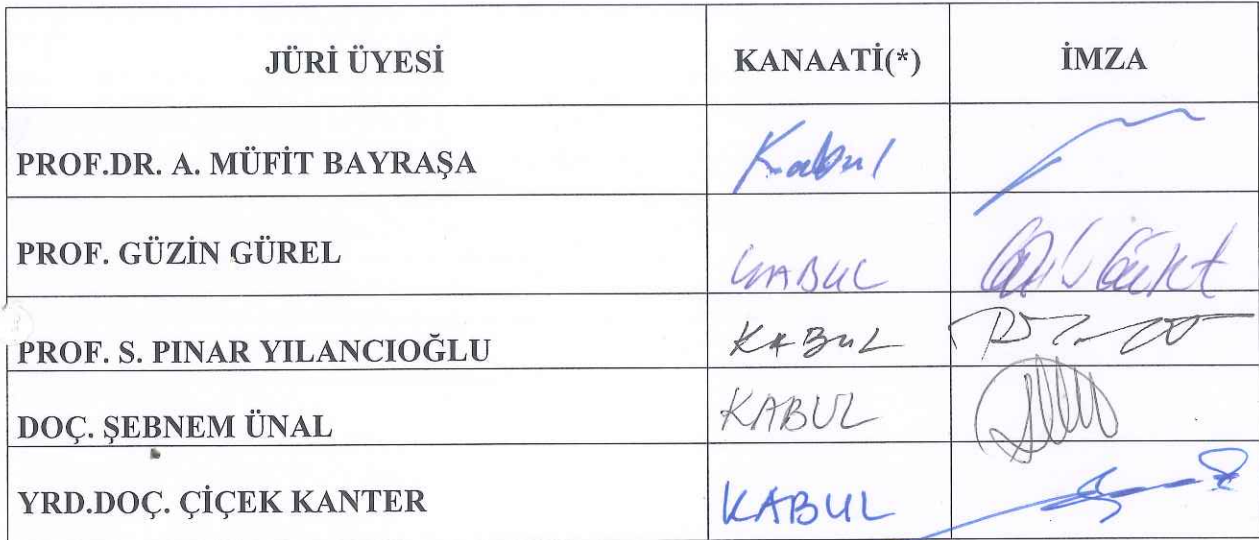 JÜRİ ÜYESİ KANAATİ(*) İMZA
PROF.DR. A. MÜFİT BAYRAŞA Kabul
PROF. GÜZİN GÜREL KABUL
PROF. S. PINAR YILANCIOĞLU KABUL
DOÇ. ŞEBNEM ÜNAL KABUL
YRD.DOÇ. ÇİÇEK KANTER KABUL